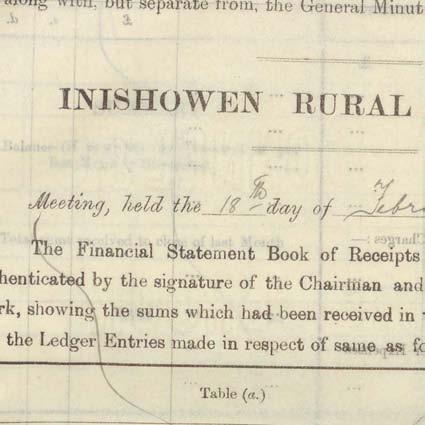 along with, but separate from, the General Minut
INISHOWEN RURAL
Meeting, held the 18th day of Febr
The Financial Statement Book of Receipts
thenticated by the signature of the Chairman and
rk, showing the sums which had been received in
the Ledger Entries made in respect of same as fo
Table (a.)